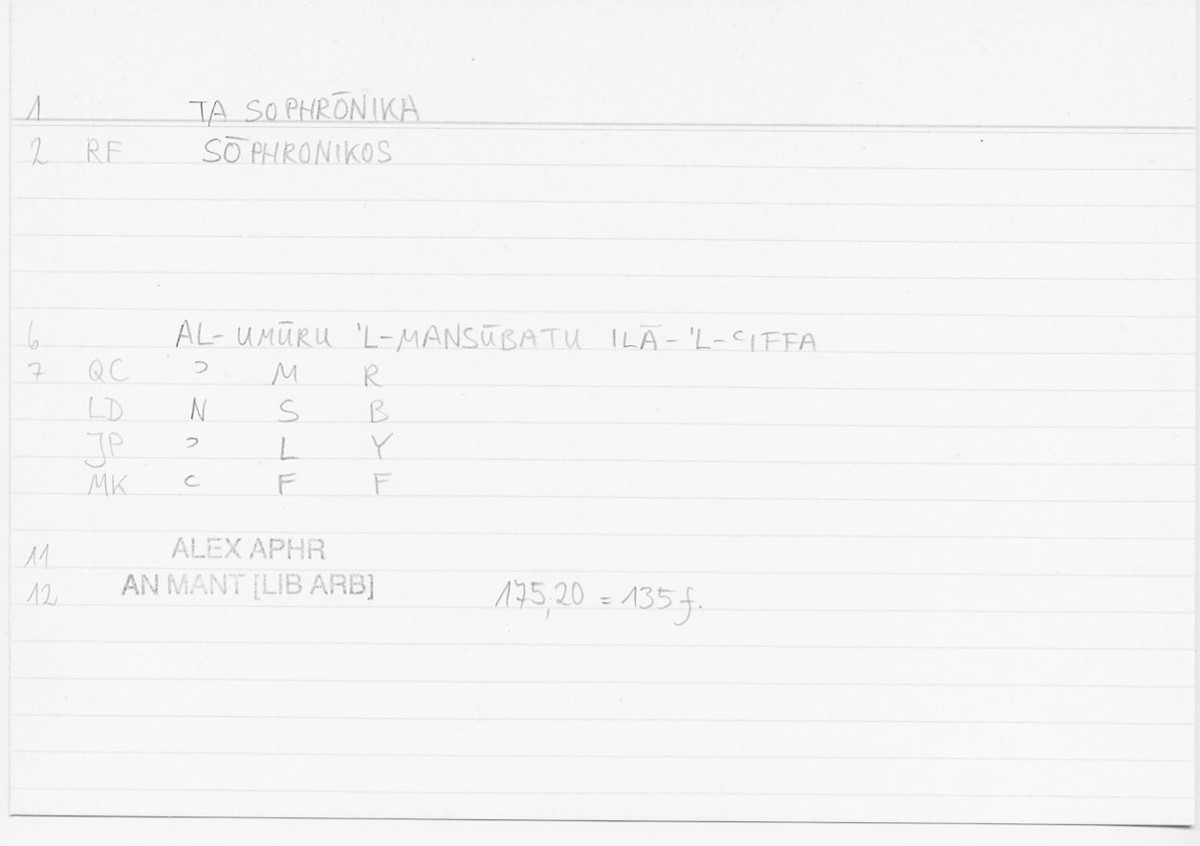 1 TA SOPHRŌNIKA
2 RF SŌPHRONIKOS
6 AL-UMŪRU 'L-MANSŪBATU ILĀ-'L-ʿIFFA
7 QC ʾ M R
LD N S B
JP ʾ L Y
MK ʿ F F
11 ALEX APHR
12 AN MANT [LIB ARB] 175,20 = 135 f.